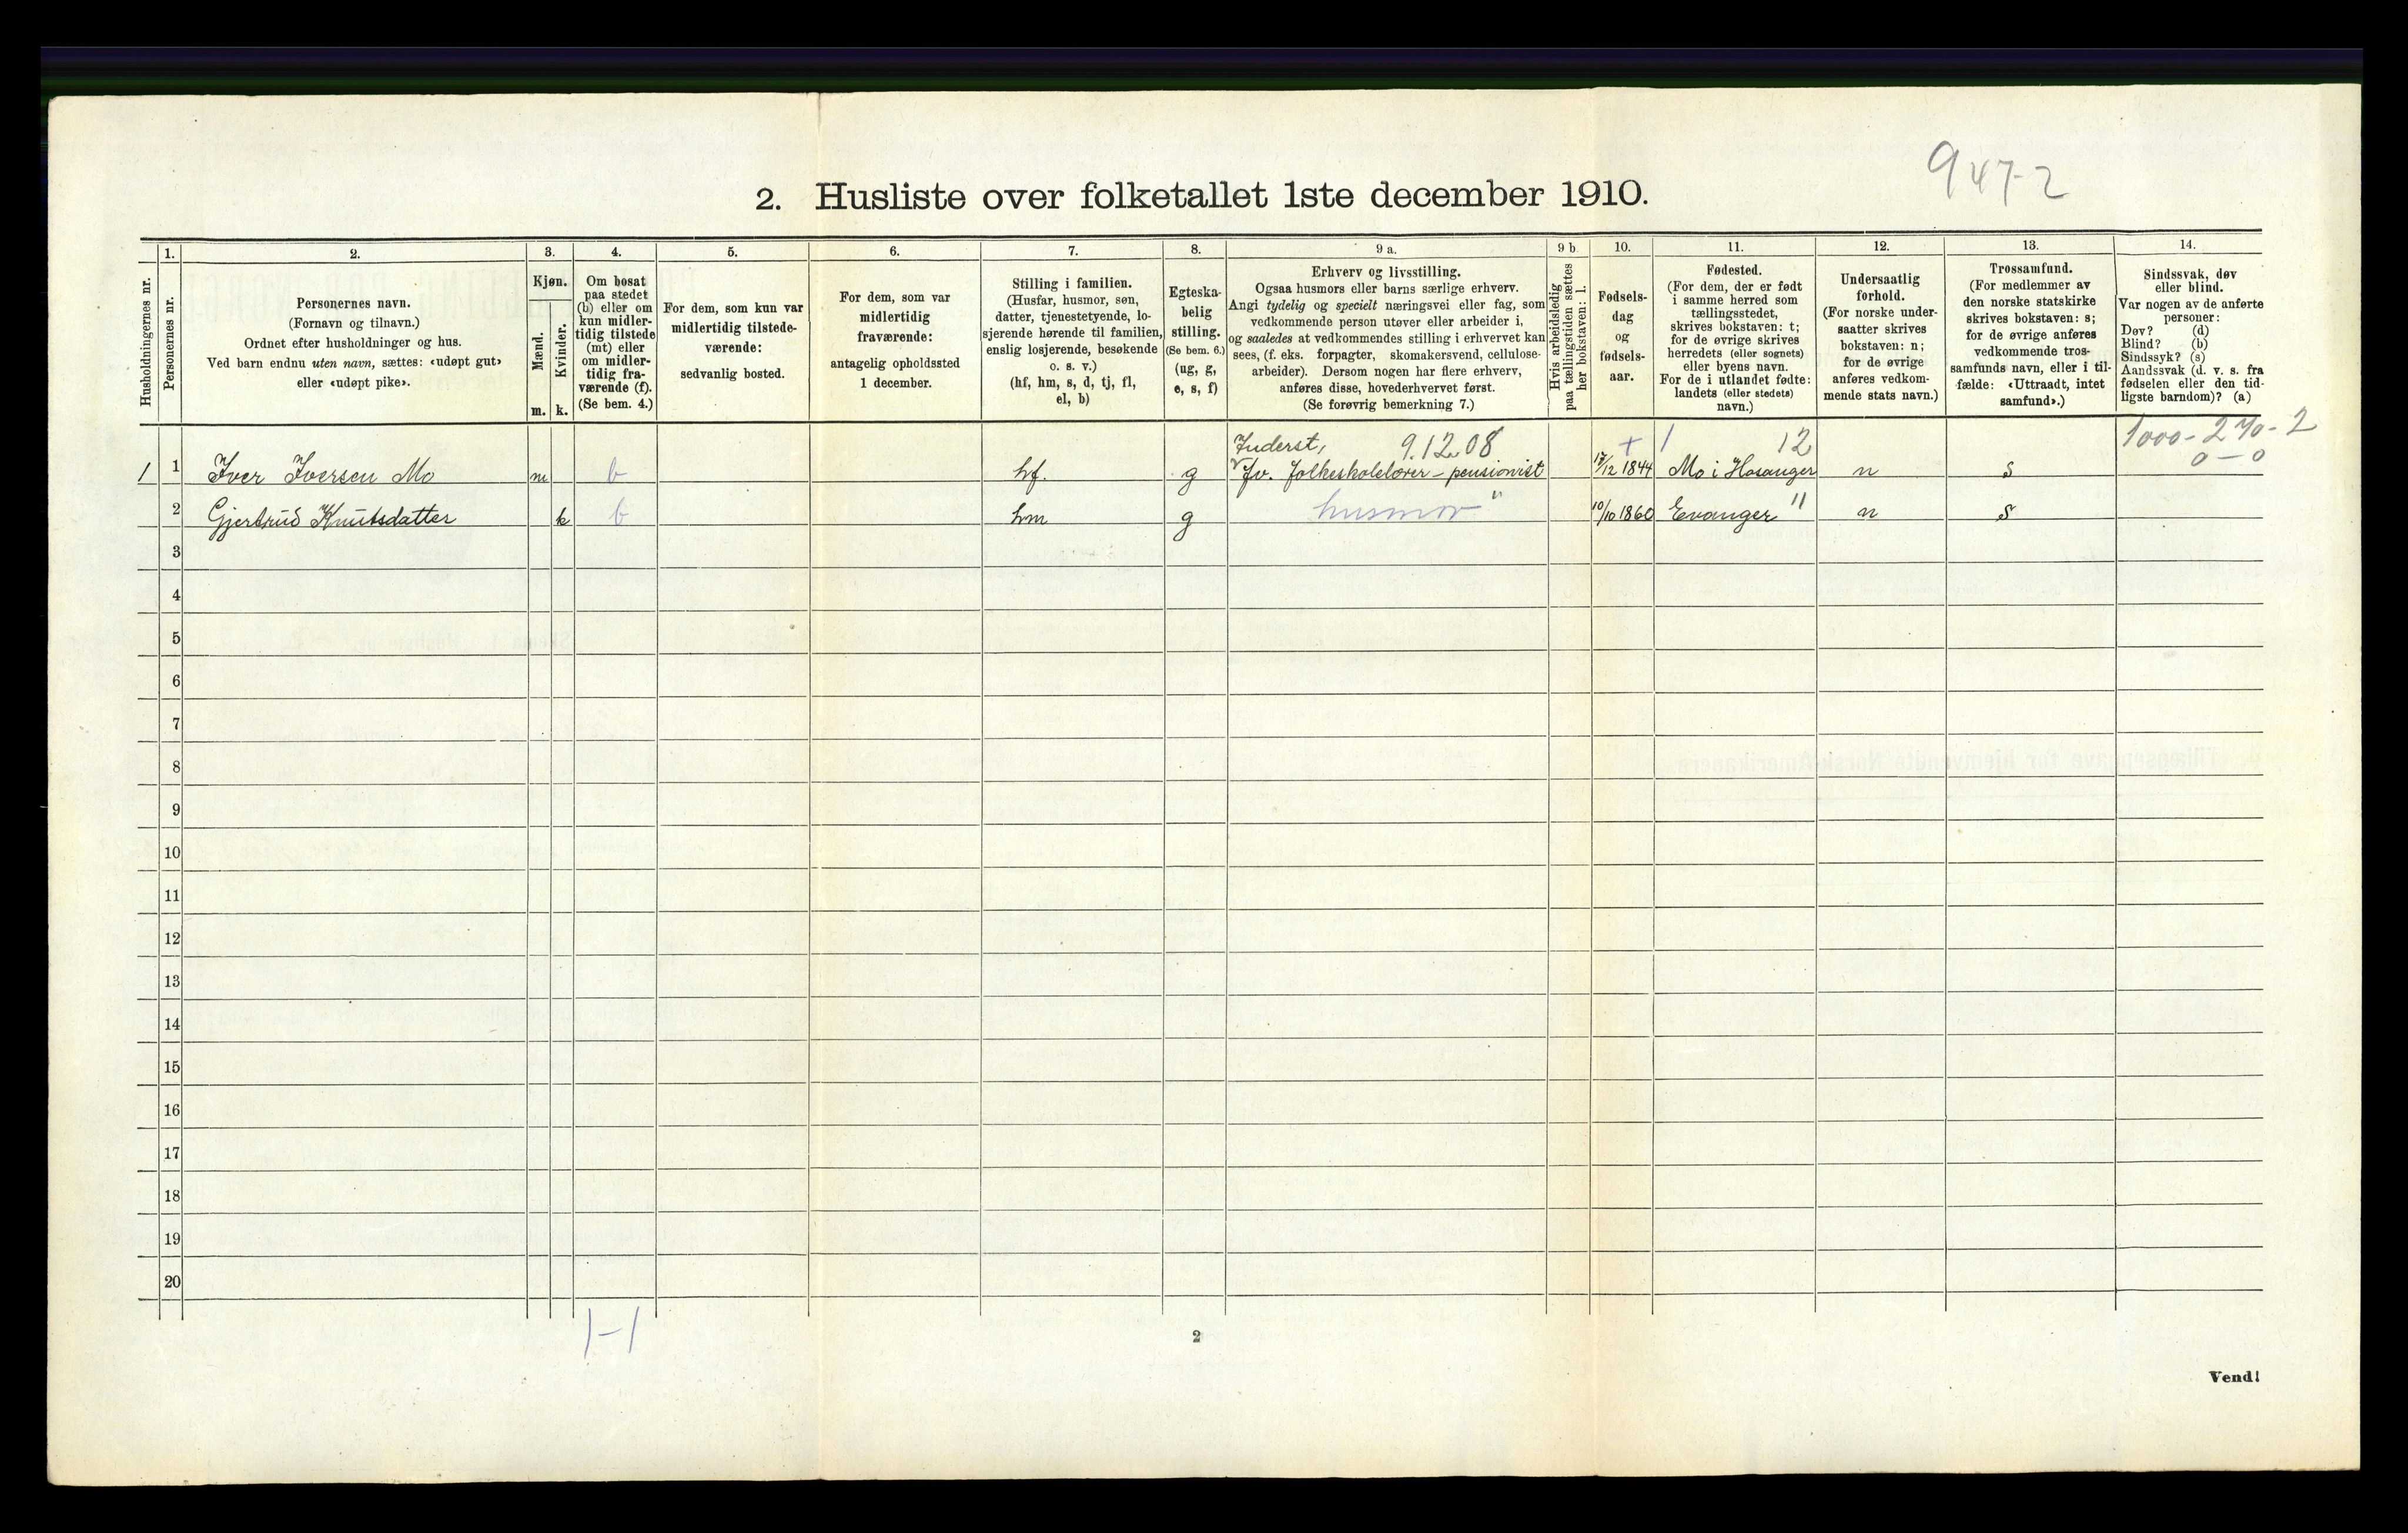 947-2
2. Husliste over folketallet 1ste december 1910.
Husholdningernes nr.
1.
Personernes nr.
2.
Personernes navn.
(Fornavn og tilnavn.)
Ordnet efter husholdninger og hus.
Ved barn endnu uten navn, sættes: «udøpt gut»
eller «udøpt pike».
3.
Kjøn.
Mænd.
m.
Kvinder.
k.
4.
Om bosat
paa stedet
(b) eller om
kun midler-
tidig tilstede
(mt) eller
om midler-
tidig fra-
værende (f).
(Se bem. 4.)
5.
For dem, som kun var
midlertidig tilstede-
værende:
sedvanlig bosted.
6.
For dem, som var
midlertidig
fraværende:
antagelig opholdssted
1 december.
7.
Stilling i familien.
(Husfar, husmor, søn,
datter, tjenestetyende, lo-
sjerende hørende til familien,
enslig losjerende, besøkende
o. s. v.)
(hf, hm, s, d, tj, fl,
el, b)
8.
Egteska-
belig
stilling.
(Se bem. 6.)
(ug, g,
e, s, f)
9 a.
Erhverv og livsstilling.
Ogsaa husmors eller barns særlige erhverv.
Angi tydelig og specielt næringsvei eller fag, som
vedkommende person utøver eller arbeider i,
og saaledes at vedkommendes stilling i erhvervet kan
sees, (f. eks. forpagter, skomakersvend, cellulose-
arbeider). Dersom nogen har flere erhverv,
anføres disse, hovederhvervet først.
(Se forøvrig bemerkning 7.)
9 b.
Hvis arbeidsledig
paa tællingstiden sættes
her bokstaven: l.
10.
Fødsels-
dag
og
fødsels-
aar.
11.
Fødested.
(For dem, der er født
i samme herred som
tællingsstedet,
skrives bokstaven: t;
for de øvrige skrives
herredets (eller sognets)
eller byens navn.
For de i utlandet fødte:
landets (eller stedets)
navn.)
12.
Undersaatlig
forhold.
(For norske under-
saatter skrives
bokstaven: n;
for de øvrige
anføres vedkom-
mende stats navn.)
13.
Trossamfund.
(For medlemmer av
den norske statskirke
skrives bokstaven: s;
for de øvrige anføres
vedkommende tros-
samfunds navn, eller i til-
fælde: «Uttraadt, intet
samfund».)
14.
Sindssvak, døv
eller blind.
Var nogen av de anførte
personer:
Døv? (d)
Blind? (b)
Sindssyk? (s)
Aandssvak (d. v. s. fra
fødselen eller den tid-
ligste barndom)? (a)
Inderst, 9.12.08 + 1 12 1000-270-2
0-0
1 1 Iver Iversen Mo m b hf. g Fv. folkeskolelærer - pensionist 17/12 1844 Mo i Hosanger n s
2 Gjertrud Knutsdatter k b hm g husmor " 10/10 1860 Evanger 11 n s
3
4
5
6
7
8
9
10
11
12
13
14
15
16
17
18
19
20
1-1
2
Vend!